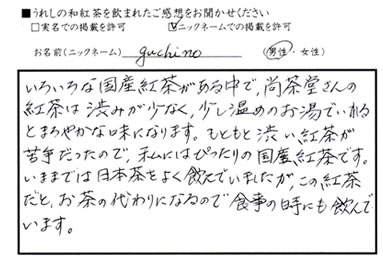 ■うれしの和紅茶を飲まれたご感想をお聞かせください
□実名での掲載を許可 ☑ニックネームでの掲載を許可
お名前(ニックネーム) guchino (男性・女性)
いろいろな国産紅茶がある中で、尚茶堂さんの
紅茶は渋みが少なく、少し温めのお湯でいれる
とまろやかな味になります。もともと渋い紅茶が
苦手だったので、私にはぴったりの国産紅茶です。
いままでは日本茶をよく飲んでいましたが、この紅茶
だと、お茶の代わりになるので食事の時にも飲んで
います。